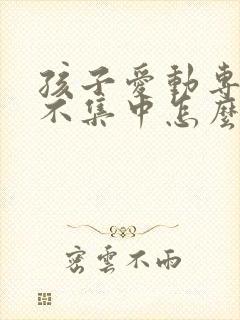 孩子愛動專
不集中怎麼
密雲不雨